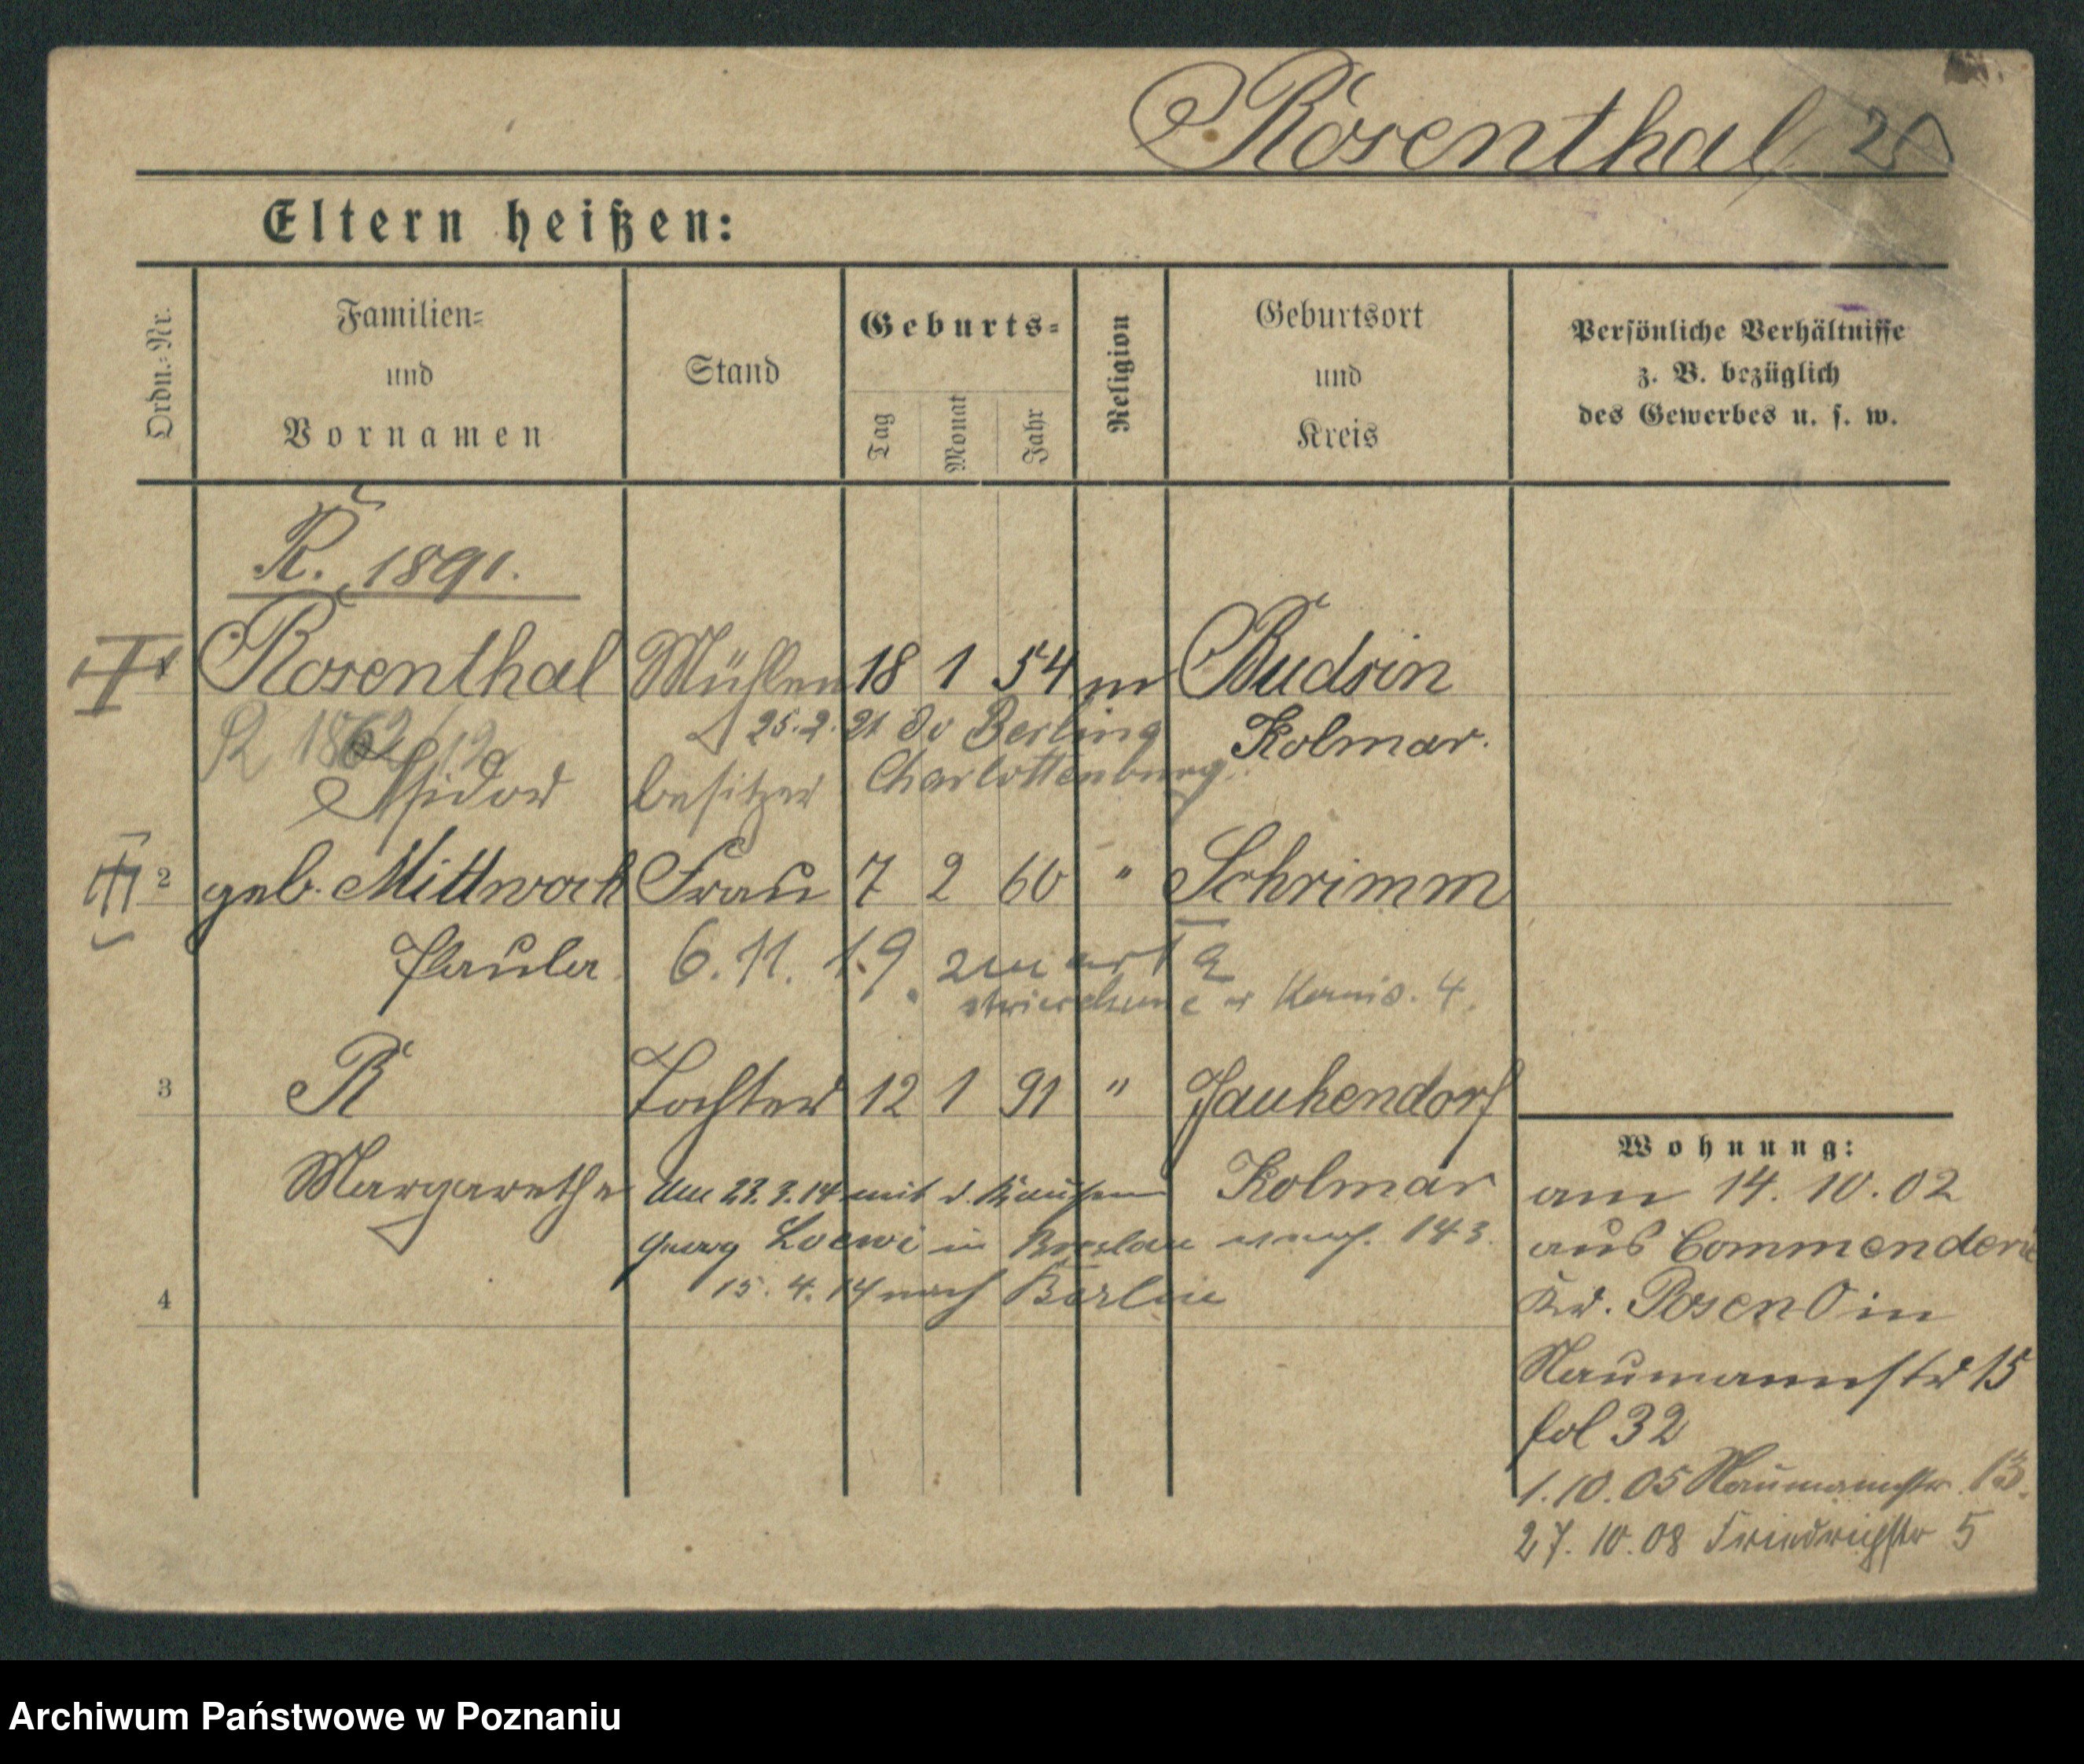 Rosenthal
Eltern heißen:
Ordn.-Nr.
Familien- und Vornamen
Stand
Geburts-
Tag
Monat
Jahr
Religion
Geburtsort und Kreis
Persönliche Verhältnisse z. B. bezüglich des Gewerbes u. s. w.
R. 1891.
Rosenthal Mühlen 18 1 54 m Budsin
25.2.21 Berlin
Kolmar.
Isidor besitzer Charlottenburg
2 geb. Mittwoch Frau 7 2 60 " Schrimm
Paula 6. 11. 19
3 R Tochter 12 1 91 " Jankendorf
Margarethe Kolmar
am 23.3.14 mit d. Kaufm
Georg Loewi in Breslau 143.
15. 4. 14 nach Berlin
4
Wohnung:
am 14. 10. 02
aus Commenderie
Kr. Posen O in
Naumannstr 15
fol 32
1. 10. 05 Naumannstr. 13.
27. 10. 08 Friedrichstr 5
Archiwum Państwowe w Poznaniu